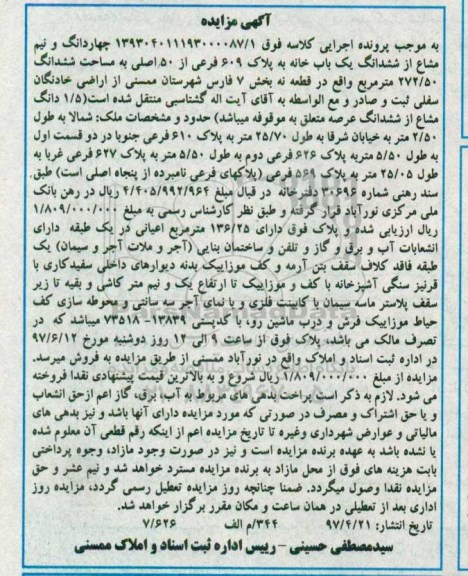 آگهی مزایده
به موجب پرونده اجرایی کلاسه فوق ۱۳۹۳۰۴۰۱۱۱۹۳۰۰۰۰۸۷/۱ چهاردانگ و نیم
مشاع از ششدانگ یک باب خانه به پلاک ۶۰۹ فرعی از ۵۰ اصلی به مساحت ششدانگ
۲۷۲/۵۰ مترمربع واقع در قطعه نه بخش ۷ فارس شهرستان ممسنی از اراضی خادنگان
سفلی ثبت و صادر و مع الواسطه به آقای آیت اله گشتاسبی منتقل شده است(۱/۵ دانگ
مشاع از ششدانگ عرصه متعلق به موقوفه میباشد) حدود و مشخصات ملک: شمالا به طول
۲/۵۰ متر به خیابان شرقا به طول ۲۵/۷۰ متر به پلاک ۶۱۰ فرعی جنوبا در دو قسمت اول
به طول ۵/۵۰ متربه پلاک ۶۲۶ فرعی دوم به طول ۵/۵۰ متر به پلاک ۶۲۷ فرعی غربا به
طول ۲۵/۰۵ متر به پلاک ۵۶۹ فرعی (پلاکهای فرعی نامبرده از پنجاه اصلی است) طبق
سند رهنی شماره ۳۰۶۹۶ دفترخانه در قبال مبلغ ۴/۴۰۵/۹۹۲/۹۶۴ ریال در رهن بانک
ملی مرکزی نورآباد قرار گرفته و طبق نظر کارشناس رسمی به مبلغ ۱/۸۰۹/۰۰۰/۰۰۰
ریال ارزیابی شده و پلاک فوق دارای ۱۳۶/۲۵ مترمربع اعیانی در یک طبقه دارای
انشعابات آب و برق و گاز و تلفن و ساختمان بنایی (آجر و ملات آجر و سیمان) یک
طبقه فاقد کلاف سقف بتن آرمه و کف موزاییک بدنه دیوارهای داخلی سفیدکاری با
قرنیز سنگی آشپزخانه با کف و موزاییک تا ارتفاع یک و نیم متر کاشی و بقیه تا زیر
سقف پلاستر ماسه سیمان با کابینت فلزی و با نمای آجر سه سانتی و محوطه سازی کف
حیاط موزاییک فرش و درب ماشین رو، با کدپستی ۱۳۸۳۹-۷۳۵۱۸ میباشد که در
تصرف مالک می باشد. پلاک فوق از ساعت ۹ الی ۱۲ روز دوشنبه مورخ ۹۷/۶/۱۲
در اداره ثبت اسناد و املاک واقع در نورآباد ممسنی از طریق مزایده به فروش میرسد.
مزایده از مبلغ ۱/۸۰۹/۰۰۰/۰۰۰ ریال شروع و به بالاترین قیمت پیشنهادی نقدا فروخته
می شود. لازم به ذکر است پراخت بدهی های مربوط به آب، برق، گاز اعم ازحق انشعاب
و یا حق اشتراک و مصرف در صورتی که مورد مزایده دارای آنها باشد و نیز بدهی های
مالیاتی و عوارض شهرداری وغیره تا تاریخ مزایده اعم از اینکه رقم قطعی آن معلوم شده
یا نشده باشد به عهده برنده مزایده است و نیز در صورت وجود مازاد، وجوه پرداختی
بابت هزینه های فوق از محل مازاد به برنده مزایده مسترد خواهد شد و نیم عشر و حق
مزایده نقدا وصول میگردد. ضمنا چنانچه روز مزایده تعطیل رسمی گردد، مزایده روز
اداری بعد از تعطیلی در همان ساعت و مکان مقرر برگزار خواهد شد.
تاریخ انتشار: ۹۷/۴/۲۱ ۳۴۴/م الف ۷/۶۲۶
سیدمصطفی حسینی – رییس اداره ثبت اسناد و املاک ممسنی